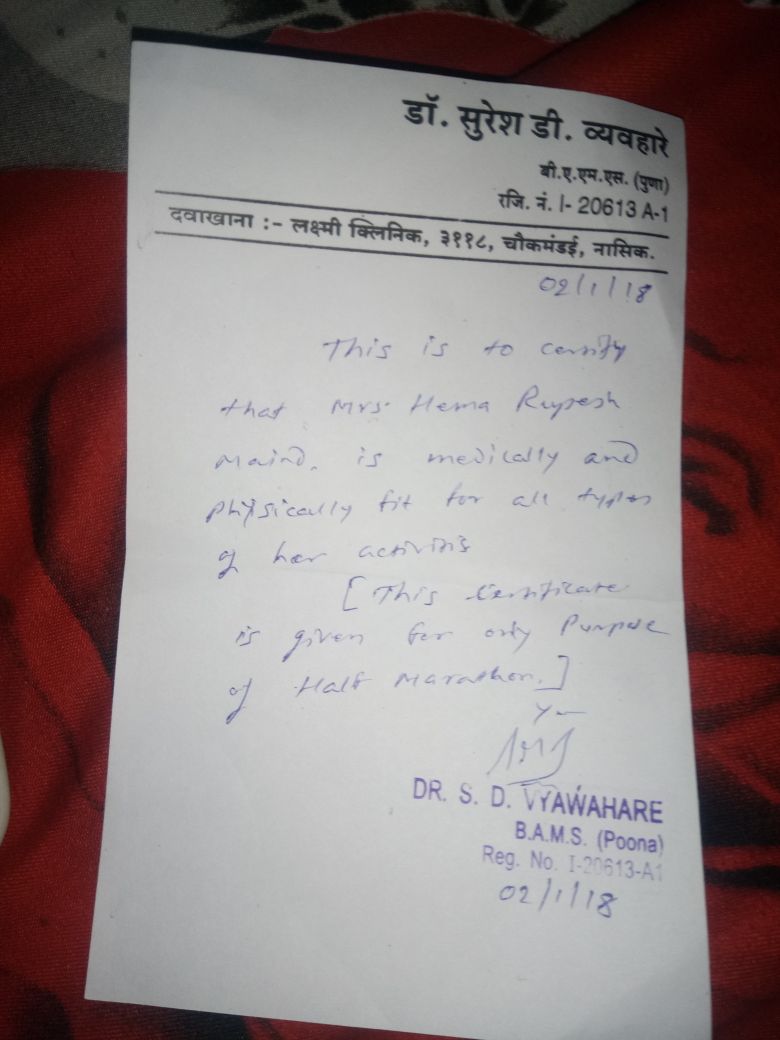 डॉ. सुरेश डी. व्यवहारे
बी.ए.एम.एस. (पुणा)
रजि. नं. I- 20613 A-1
दवाखाना :- लक्ष्मी क्लिनिक, ३११८, चौकमंडई, नासिक.
02/1/18
This is to certify
that Mrs. Hema Rupesh
Maind. is medically and
physically fit for all types
of her activitis
[This Certificate
is given for only Purpose
of Half Marathon.]
DR. S. D. VYAWAHARE
B.A.M.S. (Poona)
Reg. No. I-20613-A1
02/1/18